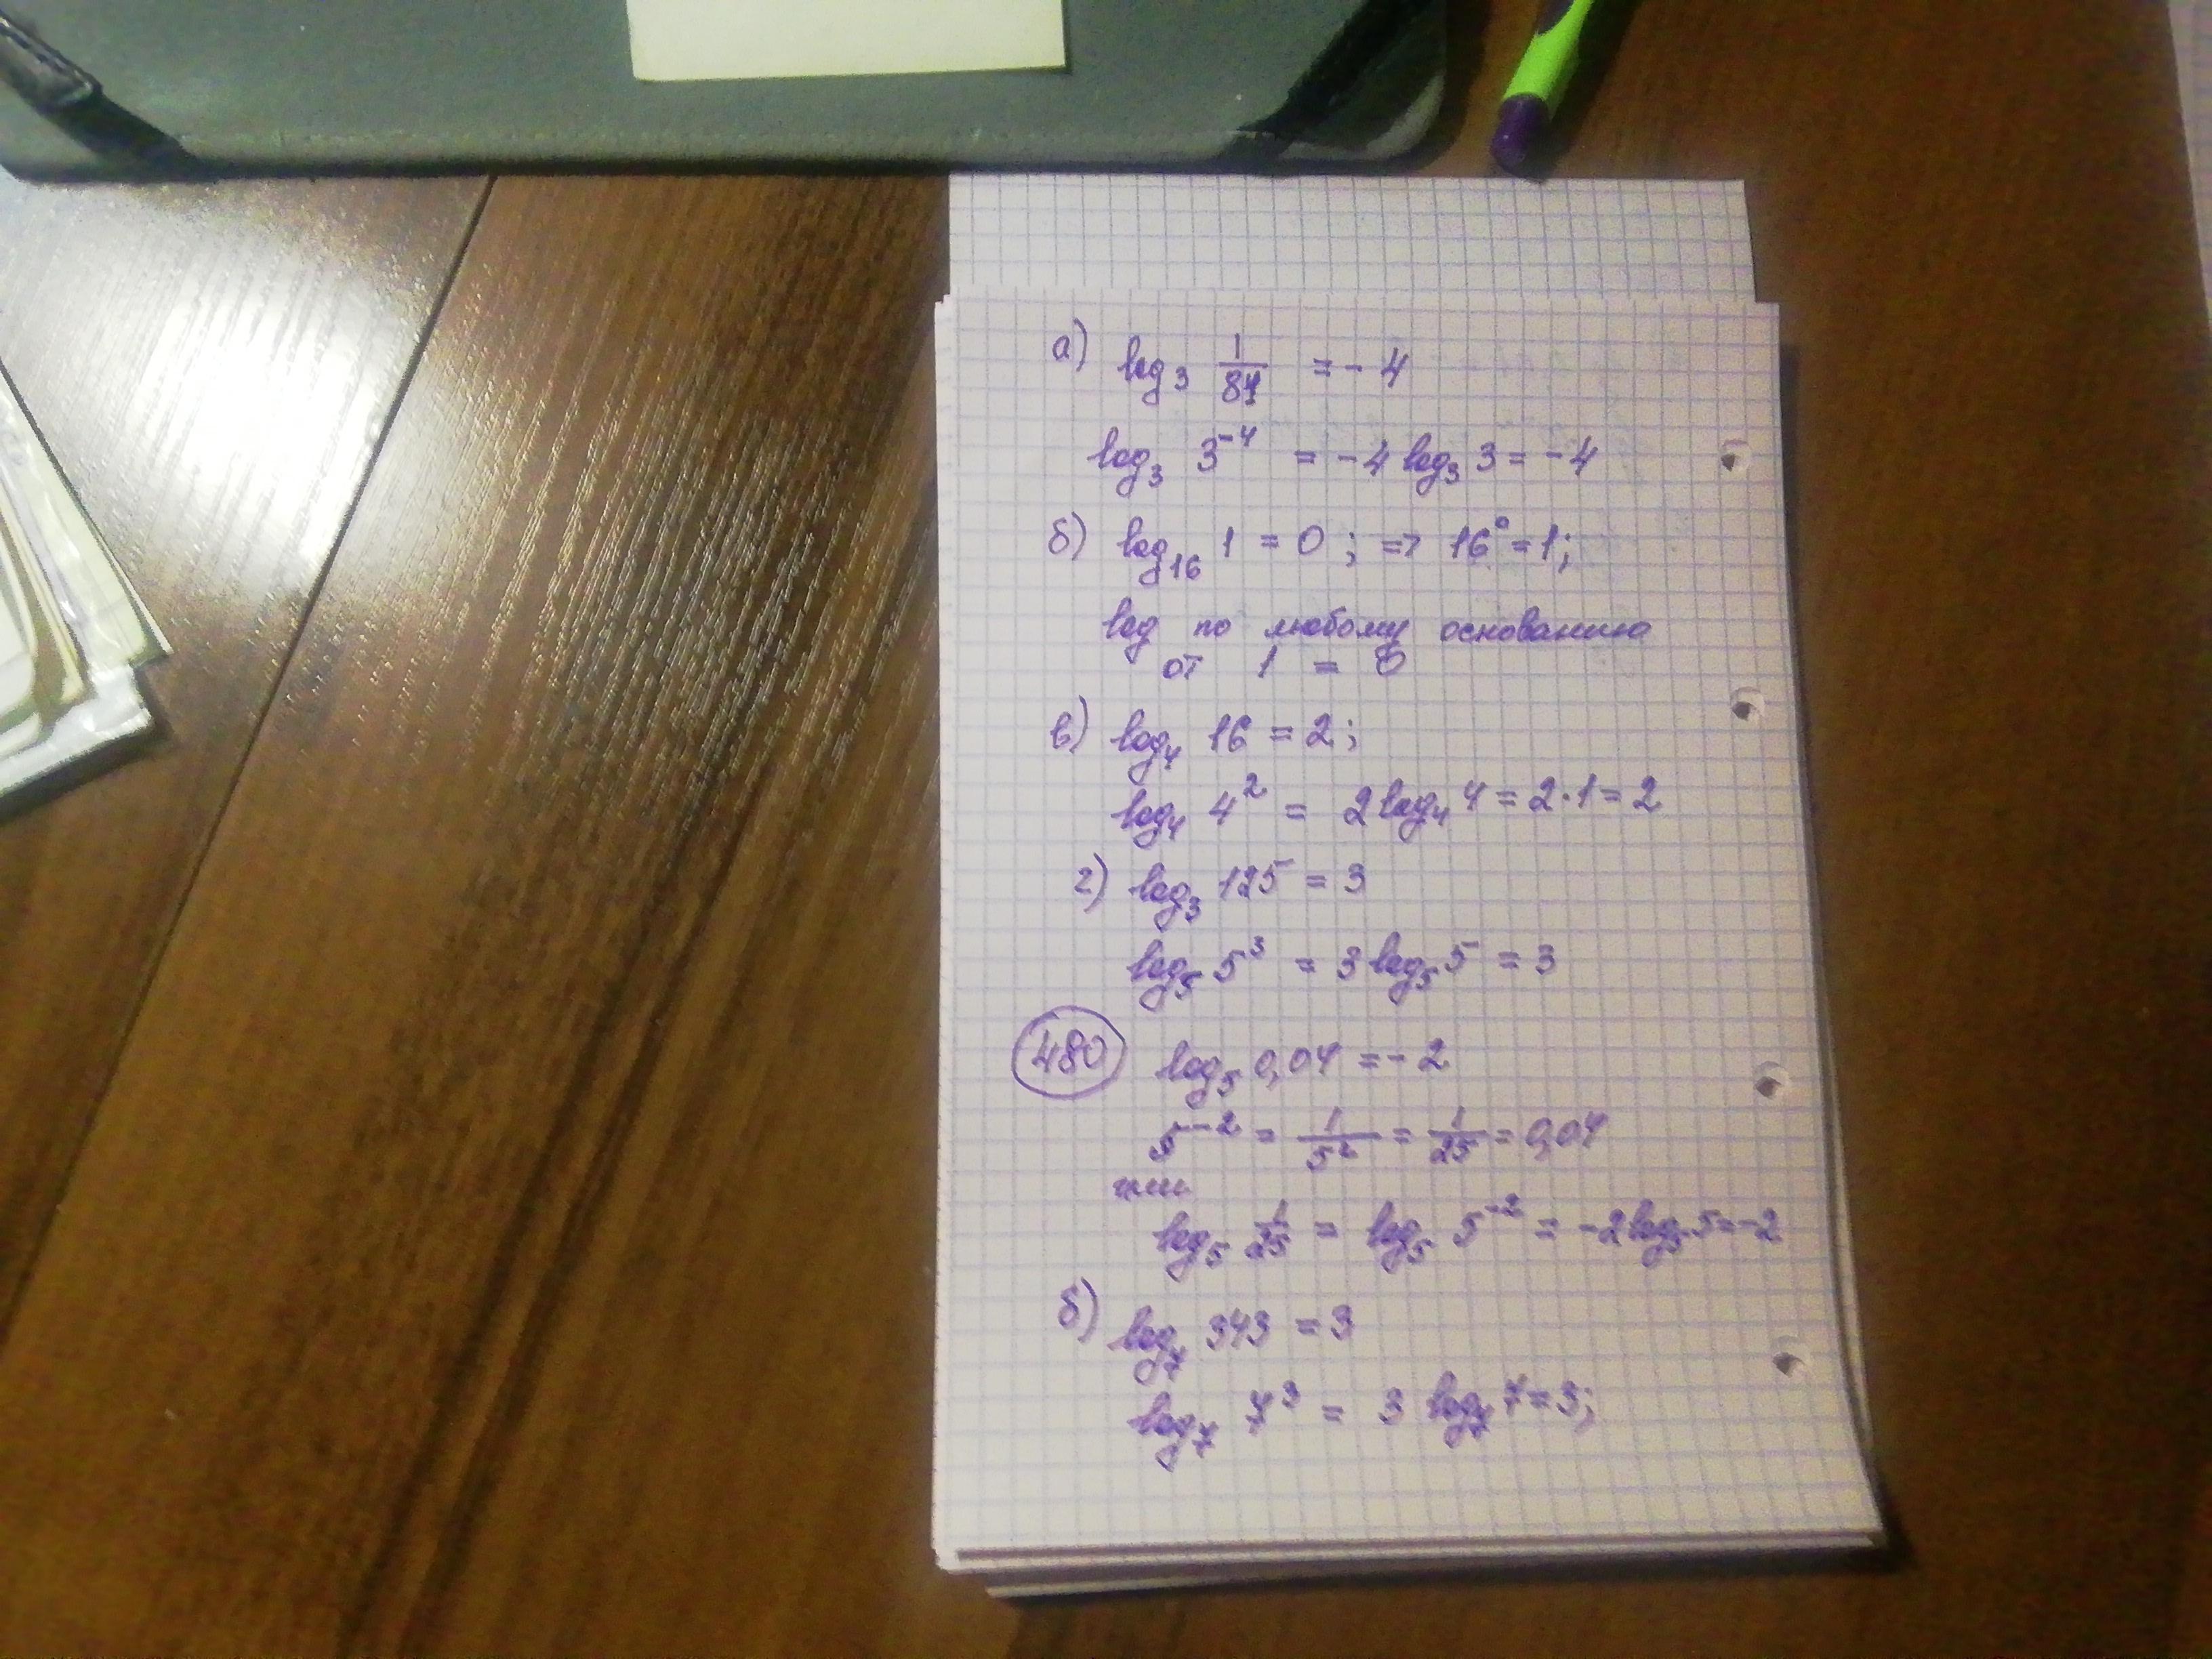 а) log₃ 1/81 = - 4
log₃ 3⁻⁴ = -4 log₃ 3 = -4
б) log₁₆ 1 = 0 ; => 16⁰ = 1;
log по любому основанию
от 1 = 0
в) log₄ 16 = 2;
log₄ 4² = 2 log₄ 4 = 2·1 = 2
г) log₃ 125 = 3
log₅ 5³ = 3 log₅ 5 = 3
480 log₅ 0,04 = - 2
5⁻² = 1/5² = 1/25 = 0,04
или
log₅ 1/25 = log₅ 5⁻² = -2 log₅ 5 = -2
б) log₇ 343 = 3
log₇ 7³ = 3 log₇ 7 = 3;